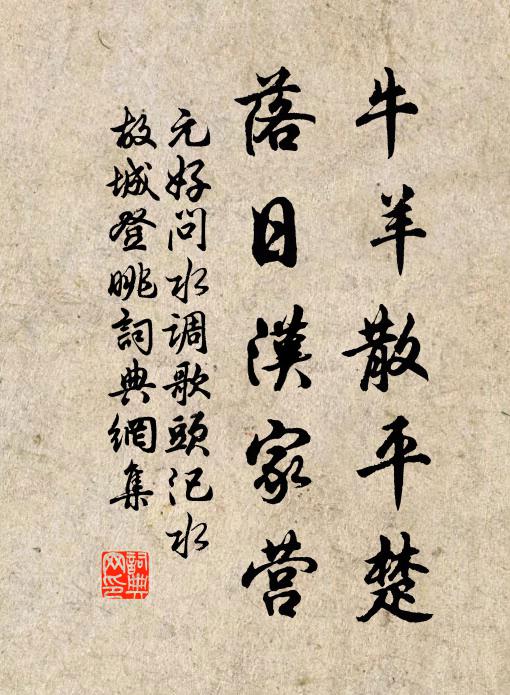 牛羊散平楚
落日漢家营
元好问水调歌頭汜水
故城登眺詞典網集
詞典网印